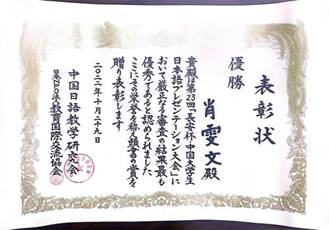 表彰状
優勝
肖雯文殿
貴殿は第23回「長安杯」中国大学生
日本語プレゼンテーション大会」に
おいて厳正なる審査の結果最も
優秀であると認められました
ここにその栄誉を称え頭書の賞を
贈り表彰します
二〇二一年十月二十九日
中国日語教学研究会
教育国際交流協会